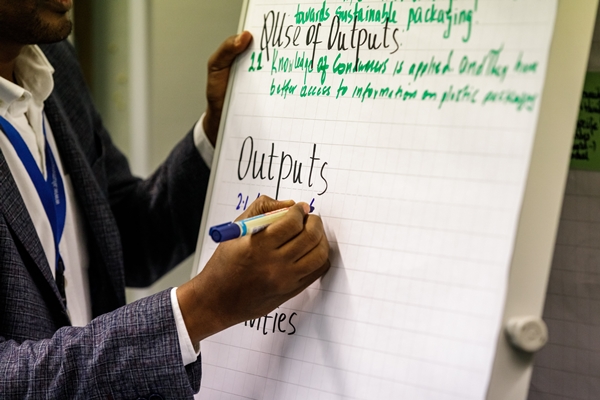 towards sustainable packaging!
Use of Outputs
2.1 Knowledge of Consumers is applied and they have
better access to information on plastic packaging
Outputs
2.1